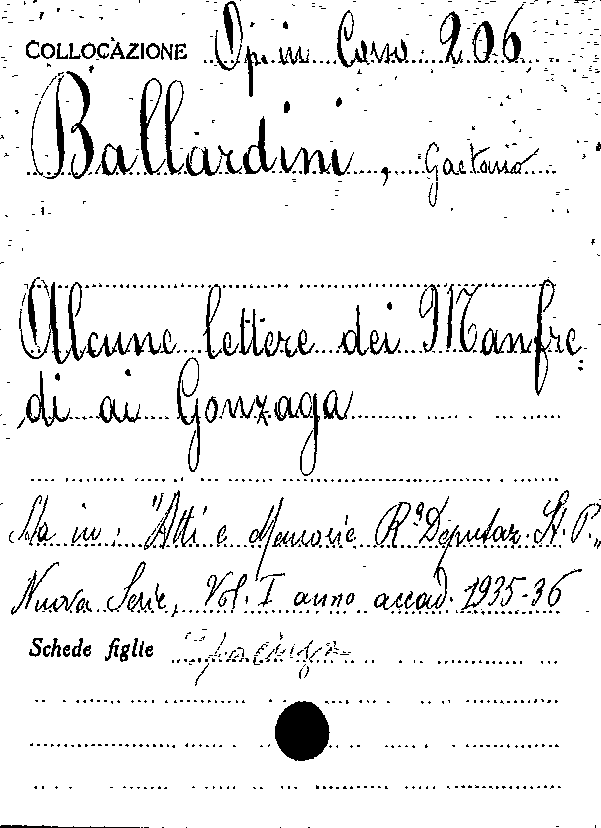 COLLOCAZIONE Op. in Corso 206
Ballardini, Gaetano
Alcune lettere dei Manfre
di ai Gonzaga
Sta in: "Atti e Memorie Rª Deputaz. St. P."
Nuova Serie, Vol. I anno accad. 1935-36
Schede figlie